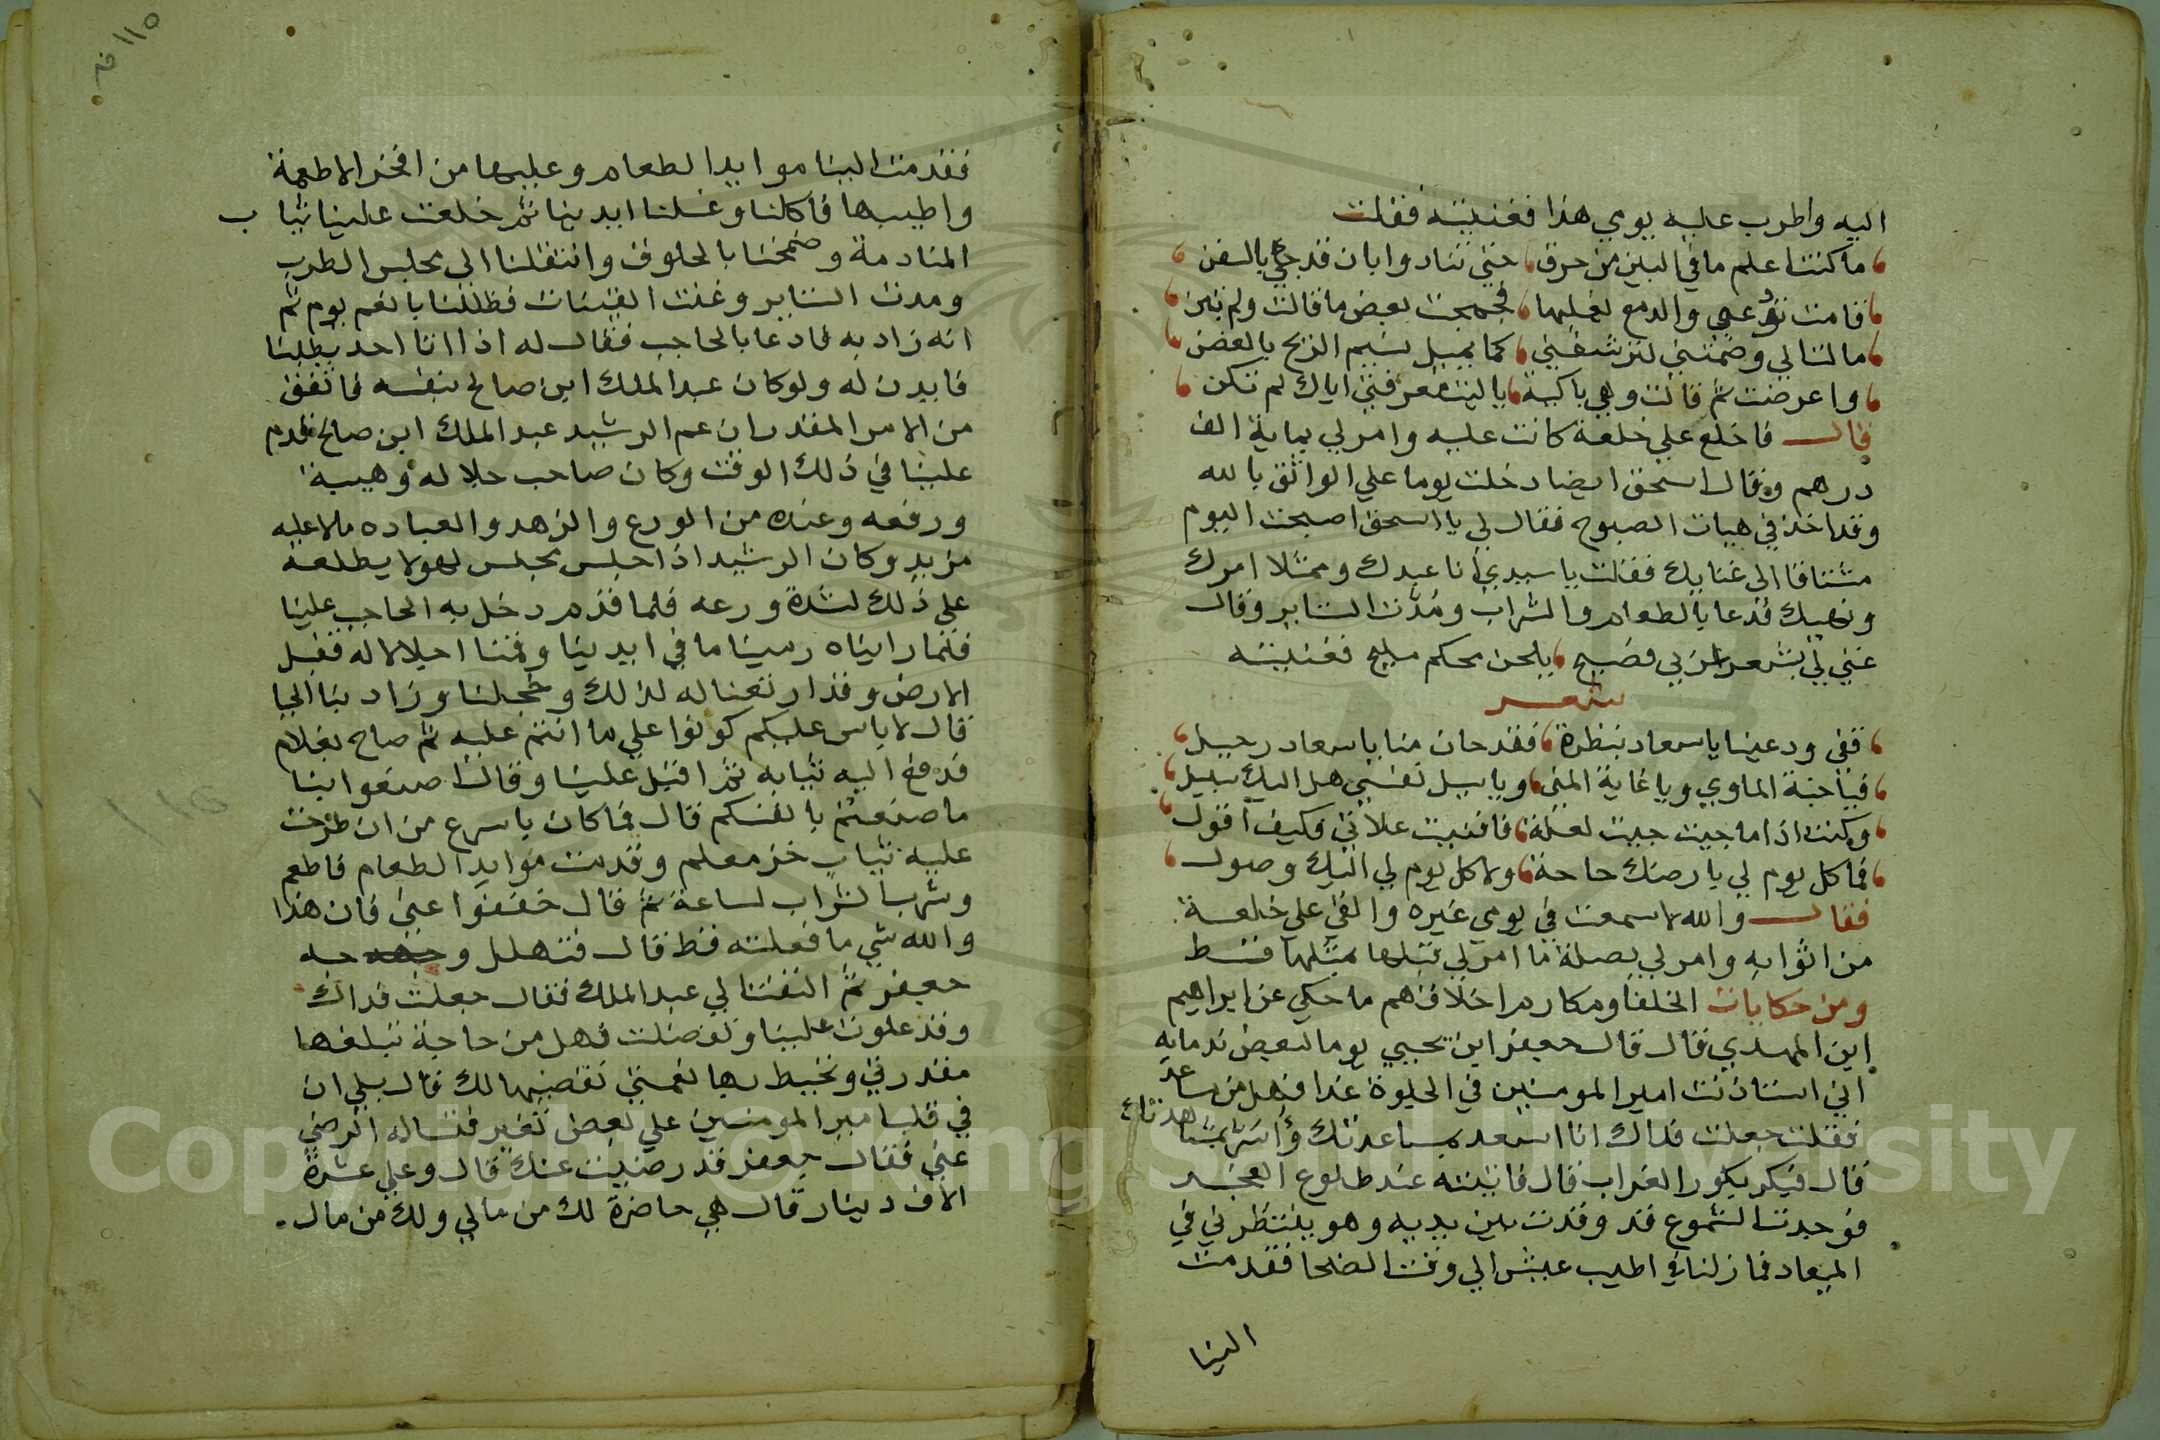 اليه واطرب عليه يومي هذا فغنيته فقلت
ما كنت اعلم ما في البين من حرق حتي تنادوا بان قد جي بالسفن
قامت تودعني والدمع يغلبها فجمجمت بعض ما قالت ولم تبن
مالت الي وضمتني لترشفني كما يميل نسيم الريح بالغصن
واعرضت ثم قالت وهي باكية يا ليت معرفتي اياك لم تكن
قال فاخلع علي خلعة كانت عليه وامر لي بماية الف
درهم وقال اسحق ايضا دخلت يوما علي الواثق بالله
وقد اخذ في هيات الصبوح فقال لي يا اسحق اصبحت اليوم
مشتاقا الي غنايك فقلت يا سيدي انا عبدك وممتثلا امرك
ونهيك فدعا بالطعام والشراب ومدت الستاير وقال
غني لي بشعر عربي فصيح بلحن محكم مليح فغنيته
شعر
قفي ودعينا يا سعاد بنظرة فقد حان منا يا سعاد رحيل
فيا جنة الماوي ويا غاية المني ويا سل نفسي هل اليك سبيل
وكنت اذا ما جيت جيت لعلة فافنيت علاتي فكيف اقول
فما كل يوم لي بارضك حاجة ولا كل يوم لي اليك وصول
فقال والله لا سمعت في يومي غيره والقي علي خلعة
من اثوابه وامر لي بصلة ما امر لي قبلها بمثلها قط
ومن حكايات الخلفا ومكارم اخلاقهم ما حكي عن ابراهيم
ابن المهدي قال قال جعفر ابن يحيي يوما لبعض ندمايه
اني استاذنت امير المومنين في الخلوة غدا فهل من ساعد
فقلت جعلت فداك انا اسعد بمساعدتك واسر بمشاهدتك
قال فبكر بكور الغراب قال فاتيته عند طلوع الفجر
فوجدت الشموع قد وقدت بين يديه وهو ينتظرني في
الميعاد فما زلنا في اطيب عيش الي وقت الضحا فقدمت
الينا
١١٥
فقدمت الينا موايد الطعام وعليها من افخر الاطعمة
واطيبها فاكلنا وغسلنا ايدينا ثم خلعت علينا ثياب
المنادمة وضمخنا بالخلوق وانتقلنا الي مجلس الطرب
ومدت الستاير وغنت القينات فظللنا بانعم يوم ثم
انه زاد به فدعا بالحاجب فقال له اذا اتا احد يطلبنا
فايدن له ولو كان عبد الملك ابن صالح بنفسه فاتفق
من الامر المقدر ان عم الرشيد عبد الملك ابن صالح قدم
علينا في ذلك الوقت وكان صاحب جلاله وهيبة
ورفعه وعنده من الورع والزهد والعباده مالا عليه
مزيد وكان الرشيد اذا جلس مجلس لهو لا يطلعه
علي ذلك لشدة ورعه فلما قدم دخل به الحاجب علينا
فلما رايناه رمينا ما في ايدينا وقمنا اجلالا له فقبل
الارض وقد ارتعنا له لذلك وخجلنا وزاد بنا الحيا
قال لا باس عليكم كونوا علي ما انتم عليه ثم صاح بغلام
فدفع اليه ثيابه ثم اقبل علينا وقال اصنعوا بنا
ما صنعتم بانفسكم قال فما كان باسرع من ان طرحت
عليه ثياب خز معلم وقدمت موايد الطعام فاطعم
وشرب الشراب لساعة ثم قال خففوا عني فان هذا
والله شي ما فعلته قط قال فتهلل وجهه
جعفر ثم التفت الي عبد الملك فقال جعلت فداك
وقد علوت علينا وتفضلت فهل من حاجة تبلغها
مقدرتي وتحيط بها نعمتي نقضيها لك قال بلي ان
في قلب امير المومنين علي بعض تغير فتساله الرضي
عني فقال جعفر قد رضيت عنك قال وعلي عشرة
الاف دينار قال هي حاضرة لك من مالي ولك من مال
Copyright © King Saud University